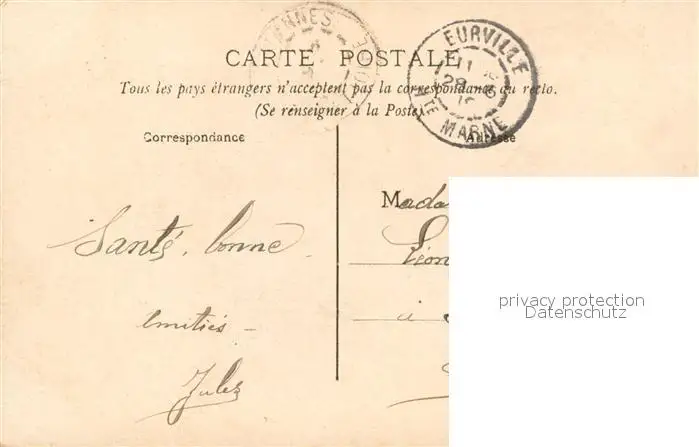 CARTE POSTALE
Tous les pays étrangers n'acceptent pas la correspondance au recto.
(Se renseigner à la Poste)
EURVILLE
HTE MARNE
Correspondance
Adresse
Santé, bonne
amitiés -
Jules
Mada
Léon
à
privacy protection
Datenschutz